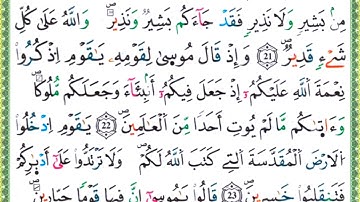 مِنۢ بَشِيرٖ وَلَا نَذِيرٖ فَقَدْ جَآءَكُم بَشِيرٞ وَنَذِيرٞ وَاللَّهُ عَلَىٰ كُلِّ
شَےْءٖ قَدِيرٞ 21 وَإِذْ قَالَ مُوسَىٰ لِقَوْمِهِۦ يَٰقَوْمِ اِذْكُرُواْ
نِعْمَةَ اَللَّهِ عَلَيْكُمُۥٓ إِذْ جَعَلَ فِيكُمُۥٓ أَنۢبِئَآءَ وَجَعَلَكُم مُّلُوكاٗ
وَءَاتَىٰكُم مَّا لَمْ يُوتِ أَحَداٗ مِّنَ اَلْعَٰلَمِينَ 22 يَٰقَوْمِ اِدْخُلُواْ
اُلَارْضَ اَلْمُقَدَّسَةَ اَلتِے كَتَبَ اَللَّهُ لَكُمْ وَلَا تَرْتَدُّواْ عَلَىٰٓ أَدْبٰ۪رِكُمْ
فَتَنقَلِبُواْ خَٰسِرِينَ 23 قَالُواْ يَٰمُوسَىٰٓ إِنَّ فِيهَا قَوْماٗ جَبّ۪ارِينَ